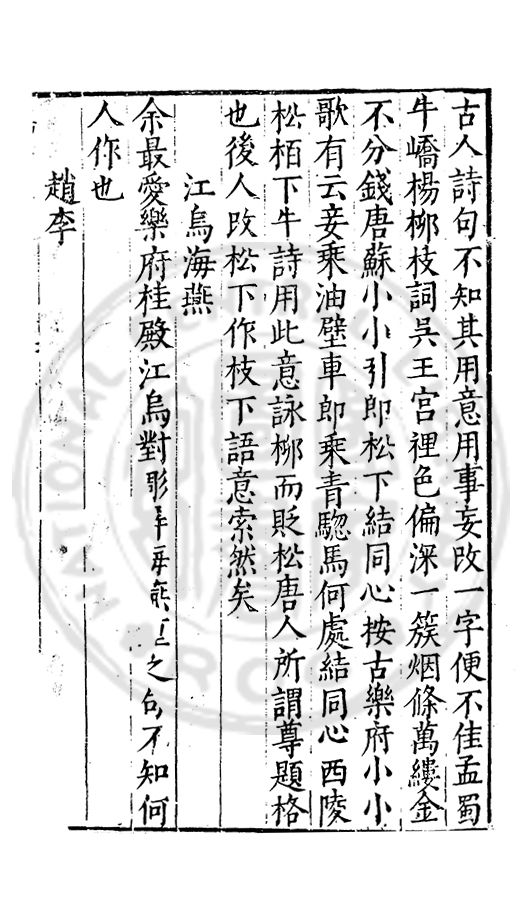 古人詩句不知其用意用事妄改一字便不佳孟蜀
牛嶠楊柳枝詞吳王宮裡色偏深一簇烟條萬縷金
不分錢唐蘇小小引郎松下結同心按古樂府小小
歌有云妾乘油壁車郎乘青驄馬何處結同心西陵
松栢下牛詩用此意詠柳而貶松唐人所謂尊題格
也後人改松下作枝下語意索然矣
江烏海燕
余最愛樂府桂殿江烏對彫之句不知何
人作也
趙李